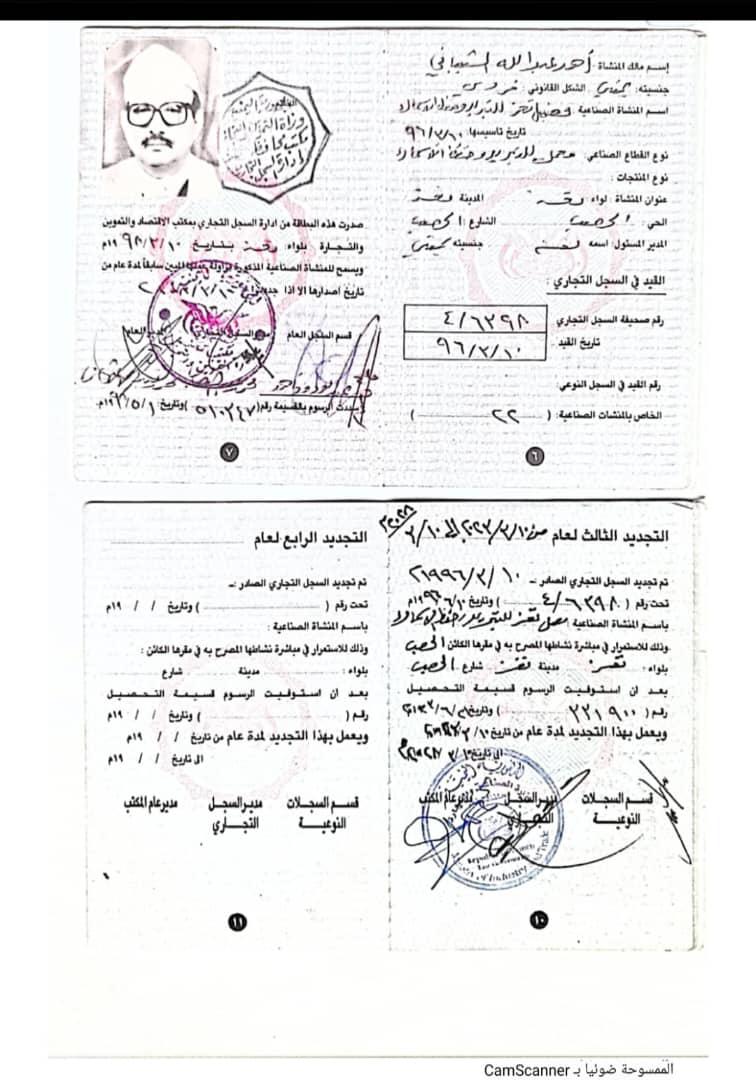 إسم مالك المنشاة: أحمد عبد الله الشيباني
جنسيته: يمني الشكل القانوني: فردي
اسم المنشاة الصناعية
تاريخ تاسيسها: ٩٦/٣/١٠
نوع القطاع الصناعي: معمل للتبريد وحفظ الاسماك
نوع المنتجات:
عنوان المنشاة: لواء تعز المدينة تعز
الحي: الحصب الشارع: الحصب
المدير المسئول: اسمه جنسيته يمني
القيد في السجل التجاري:
رقم صحيفة السجل التجاري ٤/٦٢٩٨
تاريخ القيد: ٩٦/٣/١٠
رقم القيد في السجل النوعي:
الخاص بالمنشات الصناعية: ( ٢٢ )
٦
صدرت هذه البطاقة من ادارة السجل التجاري بمكتب الاقتصاد والتموين
والتجارة بلواء: تعز بتاريخ ٩٨/٣/١٠ ١٩م
ويسمح للمنشاة الصناعية المذكورة لمدة عام من
تاريخ اصدارها الا اذا
قسم السجل العام
الرسوم بالقسيمة رقم( ٥١٠٢٤٧ )وتاريخ:
٧
التجديد الثالث لعام من ٢٠٢٣/٣/١٠ الى ٣/١٠
تم تجديد السجل التجاري الصادر:ـ ١٩٩٦/٣/١٠
تحت رقم ( ٤/٦٢٩٨ ) وتاريخ
باسم المنشاة الصناعية: معمل تعز للتبريد وحفظ الاسماك
وذلك للاستمرار في مباشرة نشاطها المصرح به في مقرها الكائن الحصب
بلواء: تعز مدينة تعز شارع الحصب
بعد ان استوفيت الرسوم قسيمة التحصيل
رقم( ٢٢١٩٠٠ ) وتاريخ
ويعمل بهذا التجديد لمدة عام من تاريخ
الى تاريخ
قسم السجلات مدير السجل مدير عام المكتب
النوعية التجاري
١٠
التجديد الرابع لعام
تم تجديد السجل التجاري الصادر:ـ
تحت رقم ( ) وتاريخ / / ١٩م
باسم المنشاة الصناعية:
وذلك للاستمرار في مباشرة نشاطها المصرح به في مقرها الكائن:
بلواء: مدينة شارع
بعد ان استوفيت الرسوم قسيمة التحصيل
رقم( ) وتاريخ / / ١٩م
ويعمل بهذا التجديد لمدة عام من تاريخ / / ١٩م
الى تاريخ / / ١٩م
قسم السجلات مدير السجل مدير عام المكتب
النوعية التجاري
١١
الممسوحة ضوئيا بـ CamScanner